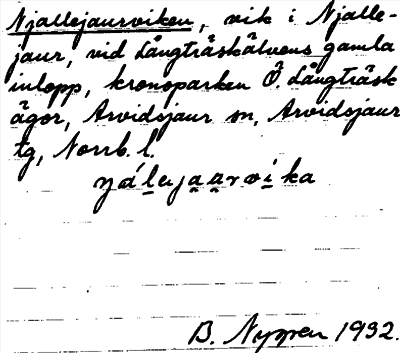 Njallejaurviken, vik i Njalle-
jaur, vid Långträskälvens gamla
inlopp, kronoparken Ö. Långträsk
ägor, Arvidsjaur sn, Arvidsjaur
tg, Norrb. l.
ŋálejaarvika
B. Nyppen 1932.